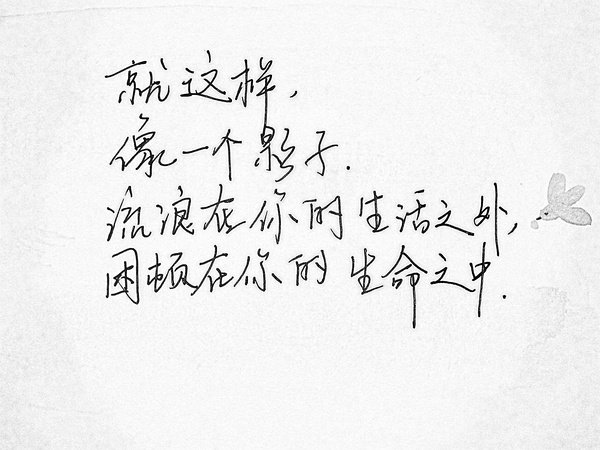 就这样,
像一个影子.
流浪在你的生活之外,
困顿在你的生命之中.